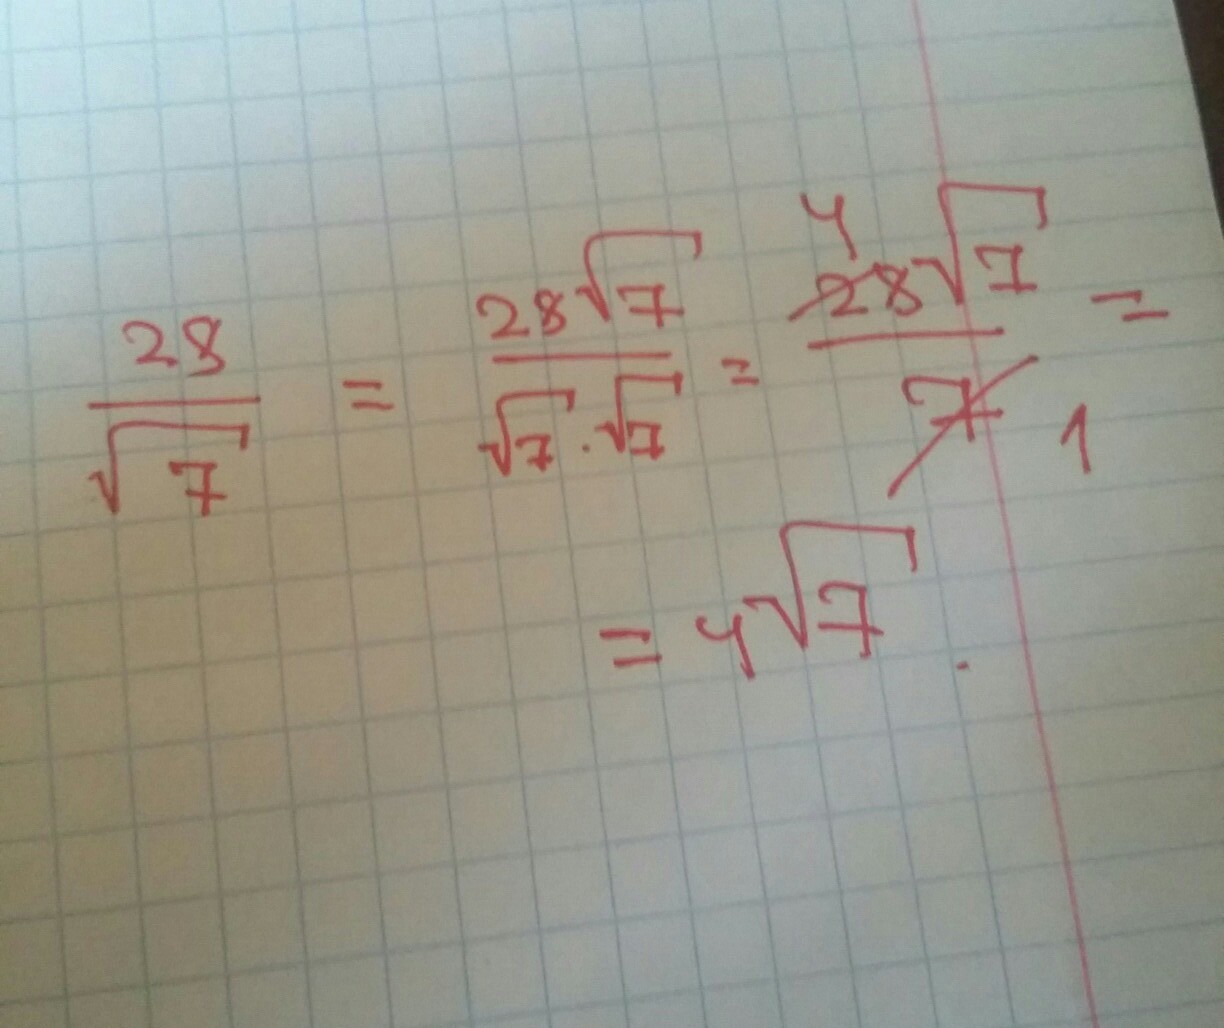 28/√7 = 28√7/√7·√7 = 4 28√7/7 1 =
= 4√7.